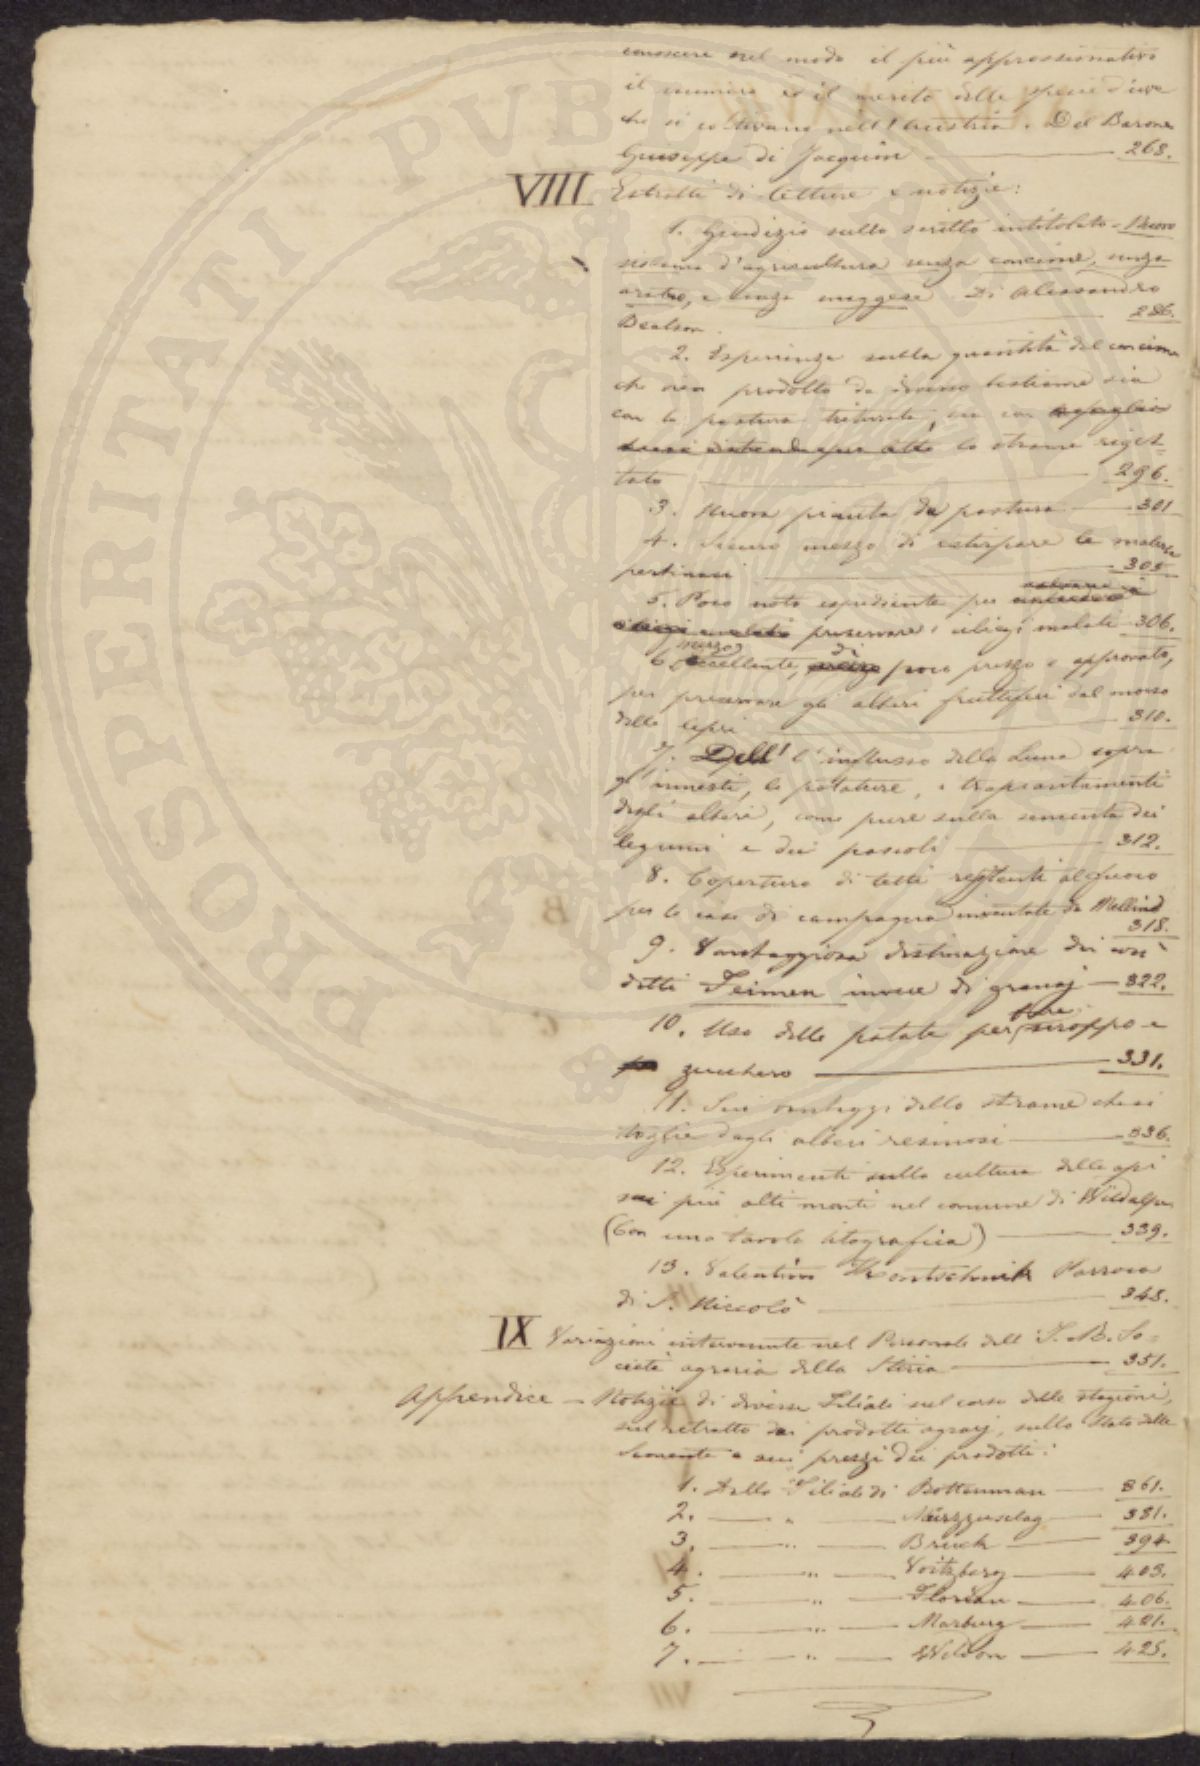 conoscere nel modo il più approssimativo
il numero ed il merito delle specie d'uve
che si coltivano nell'Austria. Del Barone
Giuseppe di Jacquin 268.
VIII Estratti di letture e notizie:
1. Giudizio sullo scritto intitolato = Nuovo
sistema d'agricoltura senza concime, senza
aratro, e senza maggese di Alessandro
Beatson. 286.
2. Esperienza sulla quantità del concime
che vien prodotto da diverso bestiame sia
con la pastura triturata, sia con
lo strame riget=
tato 296.
3. Nuova pianta da pastura 301
4. Sicuro mezzo di estirpare le malerbe
pertinaci 305
5. Poco noto espediente per
preservare i ciliegi malati 306.
6. mezzo eccellente, di poco prezzo e approvato,
per preservare gli alberi fruttiferi dal morso
delle lepri 310.
7. Dell' l'influsso della Luna sopra
gl'innesti, le potature, i trapiantamenti
degli alberi, come pure sulla sementa dei
legumi e dei pascoli 312.
8. Coperture di tetti resistenti al fuoco
per le case di campagna inventate da Mellind
318.
9. Vantaggiosa destinazione dei cosi
detti Feimen invece di granaj 322.
10. Uso delle patate per fare siroppo e
zucchero 331.
11. Sui vantaggi dello strame che si
toglie dagli alberi resinosi 336.
12. Esperimenti sulla cultura delle api
sui più alti monti nel comune di Wildalpen
(Con una tavola litografica) 339.
13. Valentino Parroco
di S. Niccolò 348.
IX Variazioni intervenute nel Personale dell' I. R. So=
cietà agraria della Stiria 351.
Appendice — Notizie di diverse Filiali sul corso delle stagioni,
sul ritratto dei prodotti agrarj, sullo stato delle
semente e sui prezzi dei prodotti:
1. Dalla Filiale di Rottenman 361.
2. — " — Mürzzuschlag 381.
3. — " — Bruck 394
4. — " — Voitzberg 403.
5. — " — Florian 406.
6. — " — Marburg 421.
7. — " — Wildon 425.
PROSPERITATI PVBLICAE